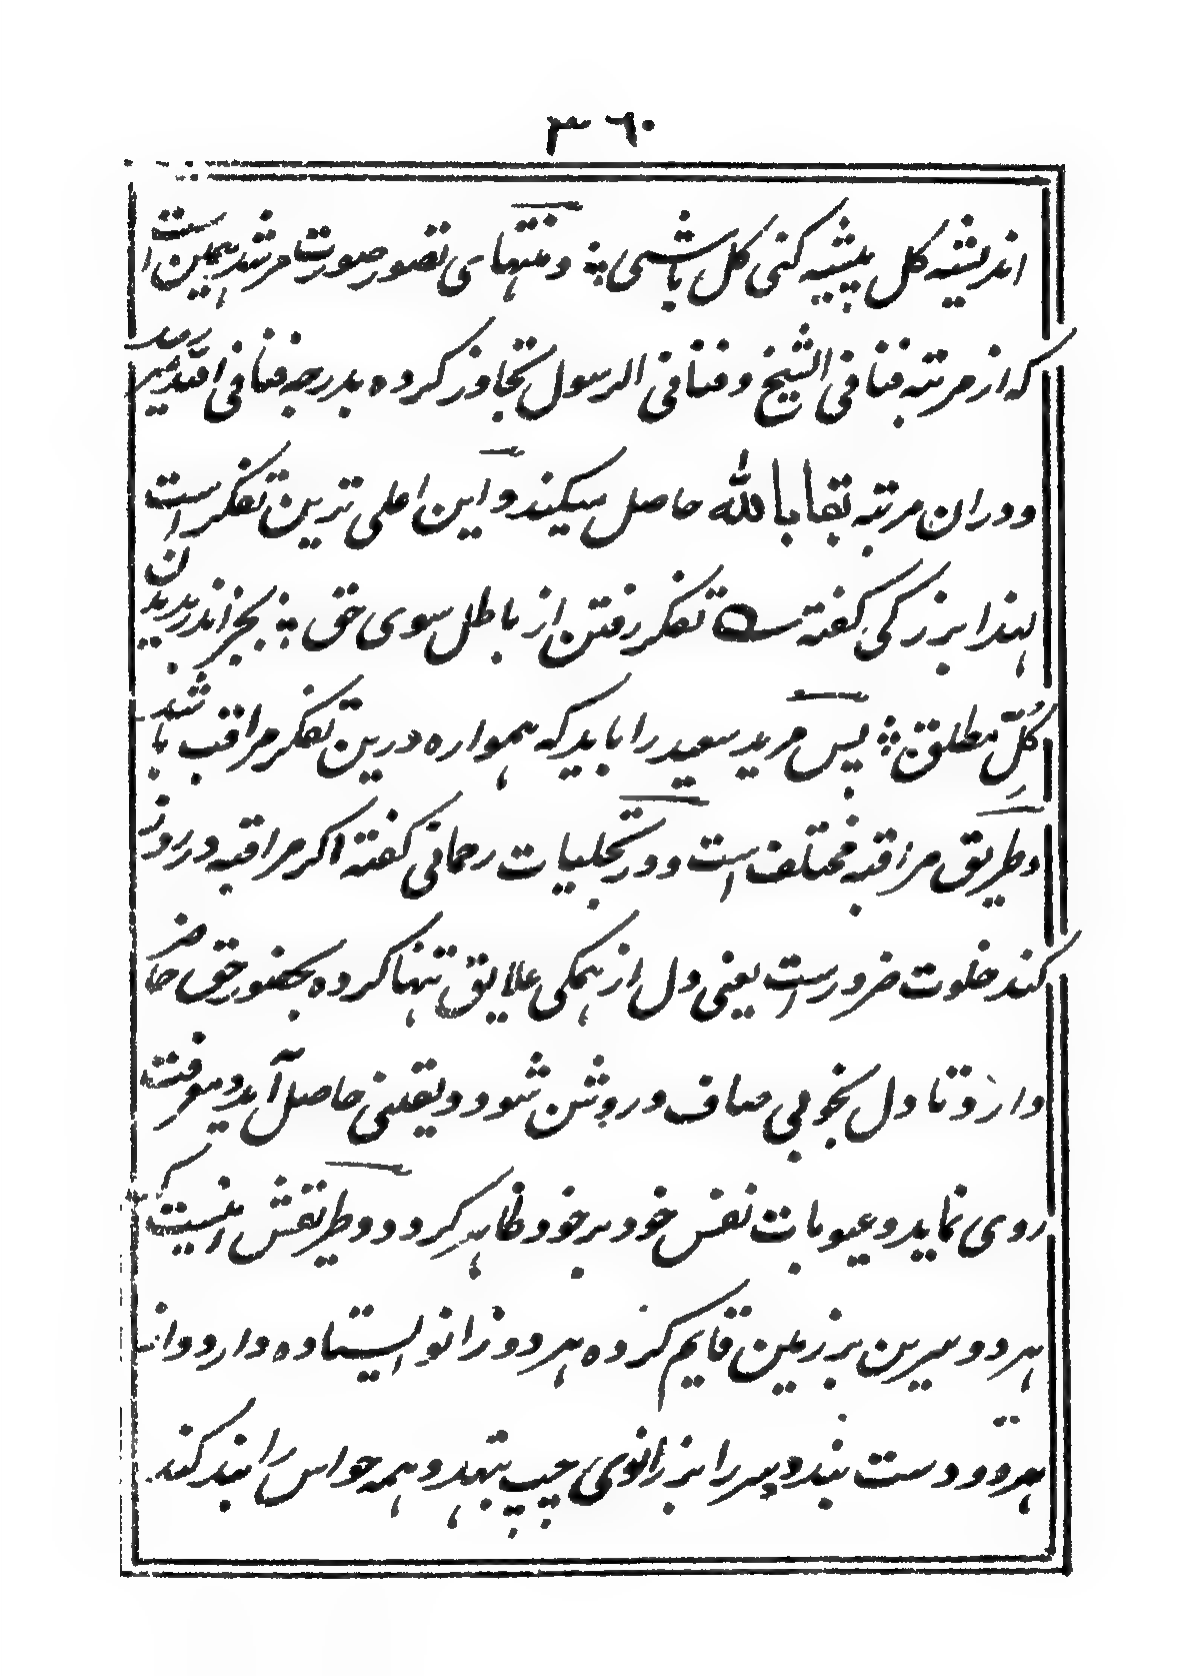 ۳۶۰
اندیشه کل پیشه کنی کل باشی ؞ ومنتهای تصور صورت مرشد همین است
که از مرتبه فنا فی الشیخ و فنا فی الرسول تجاوز کرده بدرجه فنا فی الله میرسد
و دران مرتبه بقا بالله حاصل میکند و این اعلی ترین تفکر است
لهذا بزرکی کفته تفکر رفتن از باطل سوی حق ؞ بجز اندر بدیدن
کلّ مطلق ؞ پس مرید سعید را باید که همواره درین تفکر مراقب باشد
و طریق مراقبه مختلف است و در تجلیات رحمانی کفته اکر مراقبه در روز
کند خلوت ضرورست یعنی دل از همکی علایق تنها کرده بحضور حق حاضر
دارد تا دل بخوبی صاف و روشن شود و یقینی حاصل آید و معرفت
روی نماید و عیوبات نفس خود بر خود ظاهر کردد و طریقش اینست که
هر دو سرین بر زمین قایم کرده هر دو زانو ایستاده دارد و از
هر دو دست بندد و سر را بر زانوی چپ بنهد و همه حواس را بند کند